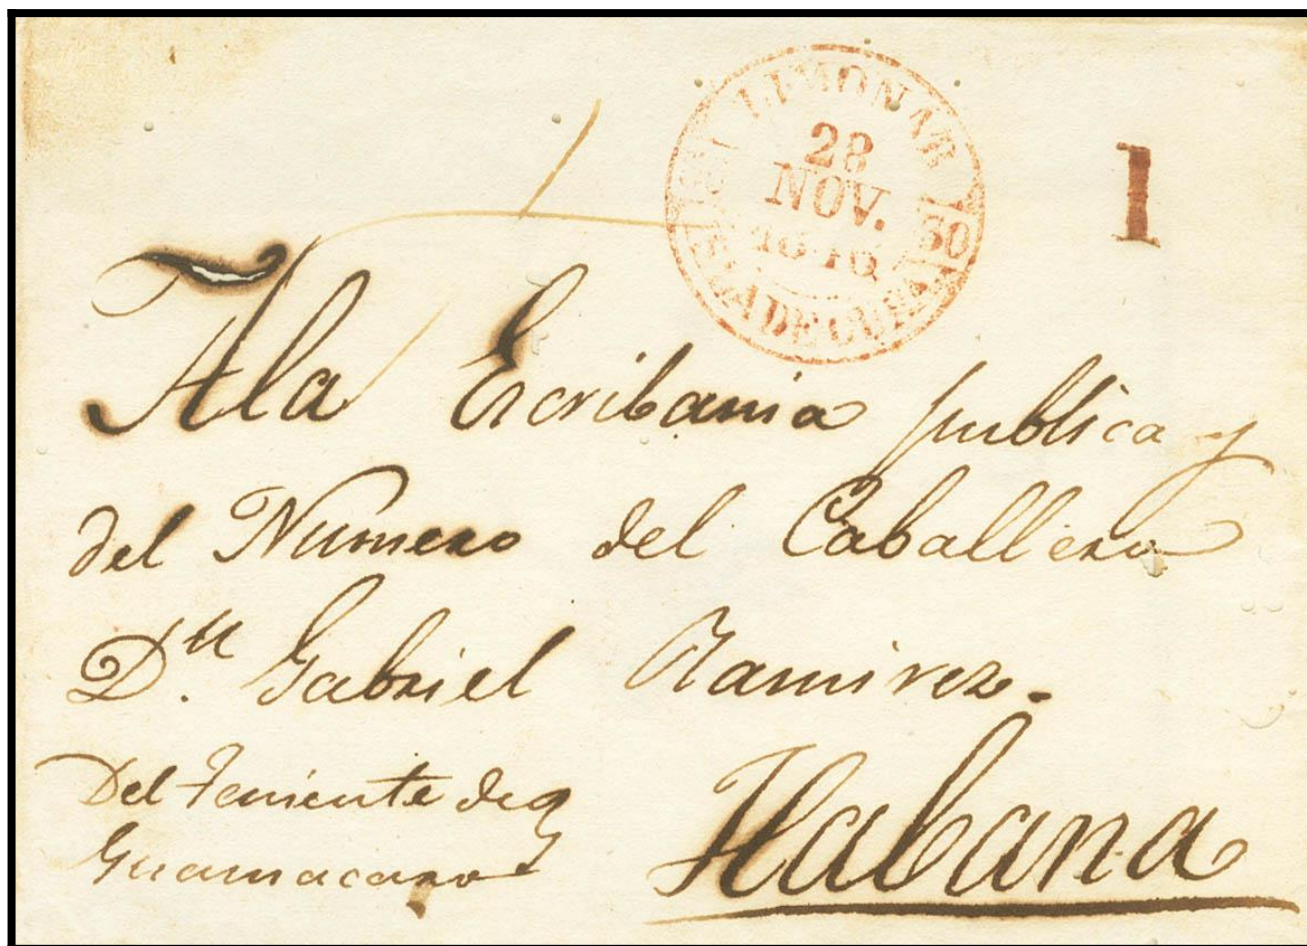 EL LIMONAR
28
NOV.
30
ISLA DE CUBA
1
A la Escribania publica y
del Numero del Caballero
Dn. Gabriel Ramirez.
Del Teniente de
Guamacaro
Habana